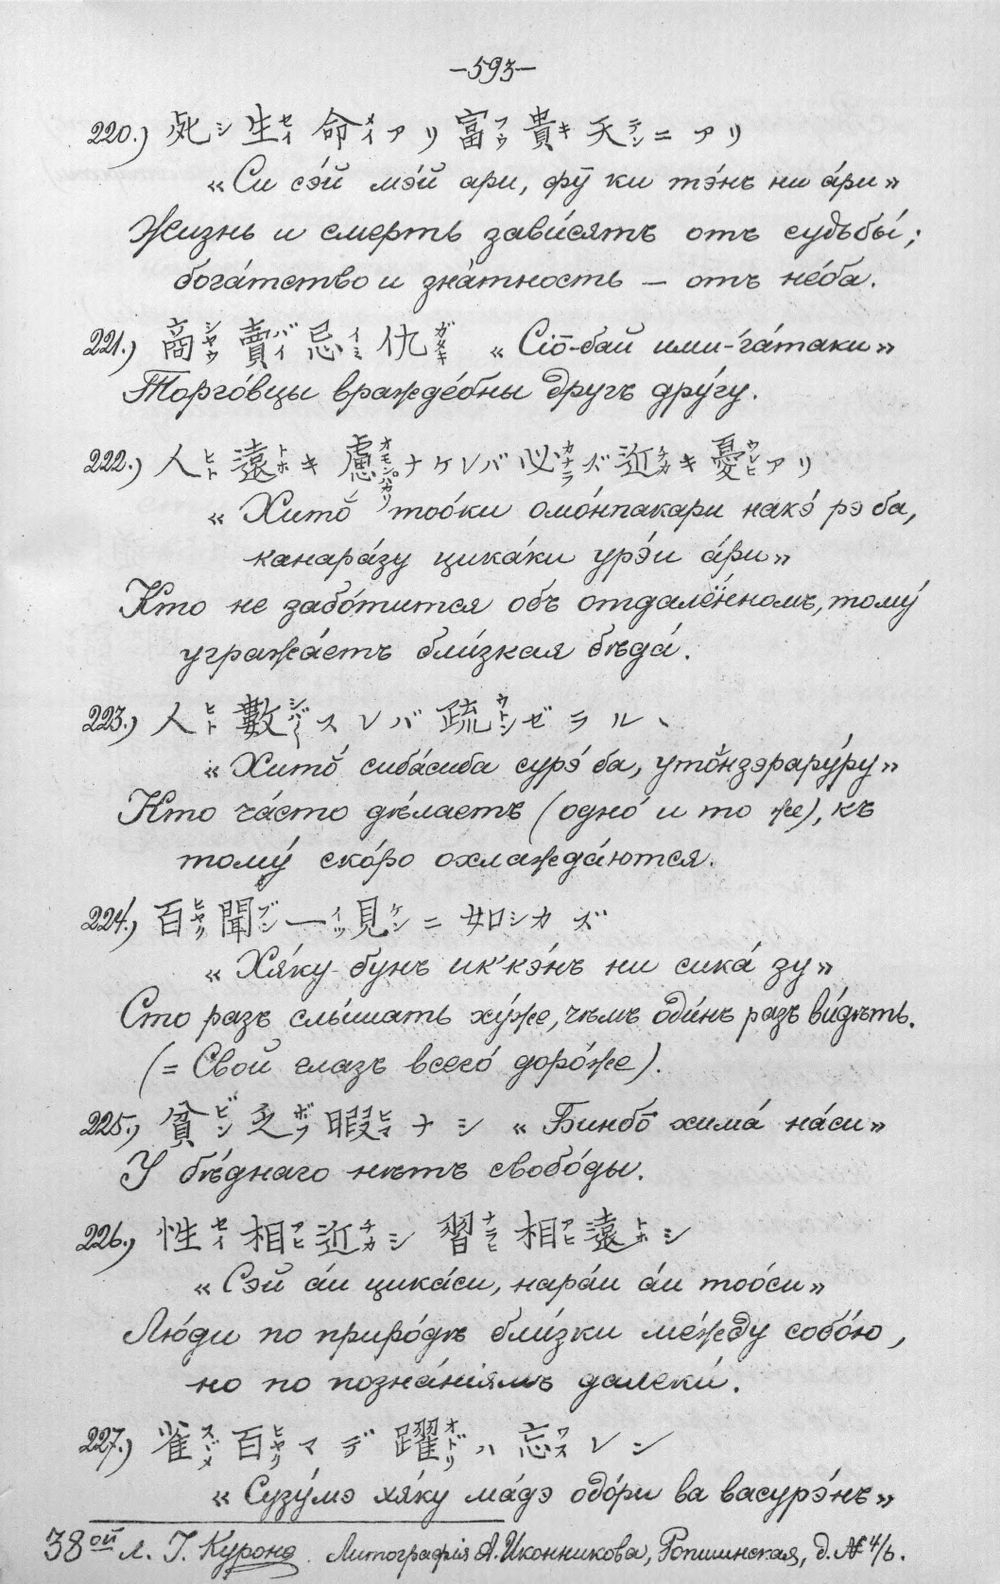 —593—
220.) 死シ生セイ命メイアリ富フウ貴キ天テンニアリ
«Си сэ́й мэ́й ари, фӯ ки тэ́нъ ни а́ри»
Жизнь и смерть зави́сятъ отъ судьбы́;
бога́тство и зна́тность — отъ не́ба.
221.) 商シャウ賣バイ忌イミ仇ガタキ «Сіо̄-бай ими-га́таки»
Торго́вцы вражде́бны другъ дру́гу.
222.) 人ヒト遠トホキ慮オモンパカリナケレバ必カナラズ近チカキ憂ウレヒアリ
«Хито̆ тоо́ки омо́нпакари накэ́ рэ ба,
канара́зу цика́ки урэ́и а́ри»
Кто не забо́тится объ отдалённомъ, тому́
угража́етъ бли́зкая бѣда́.
223.) 人ヒト數シバ〱スレバ疏ウトンゼラルヽ
«Хито̆ сиба́сиба сурэ́ ба, уто̆нзэрару́ру»
Кто ча́сто дѣлаетъ (одно́ и то же), къ
тому́ ско́ро охлажда́ются.
224.) 百ヒヤク聞ブン一イツ見ケンニ如シカズ
«Хя́ку-бунъ ик'кэ́нъ ни сика́ зу»
Сто разъ слы́шать ху́же, чѣмъ оди́нъ разъ ви́дѣть.
(= Свой глазъ всего́ доро́же).
225.) 貧ビン乏ボフ暇ヒマナシ «Бинбо̄ хима́ на́си»
У бѣ́днаго нѣтъ свобо́ды.
226.) 性セイ相アヒ近チカシ 習ナラヒ相アヒ遠トホシ
«Сэй а́и цика́си, нара́и а́и тоо́си»
Лю́ди по приро́дѣ бли́зки ме́жду собо́ю,
но по позна́ніямъ далеки́.
227.) 雀スズメ百ヒャクマデ躍オドリハ忘ワスレン
«Сузу́мэ хя́ку ма́дэ одо́ри ва васурэ́нъ»
38ой л. І. Куроно. Литографія А. Иконникова, Ропшинская, д. № 4/6.